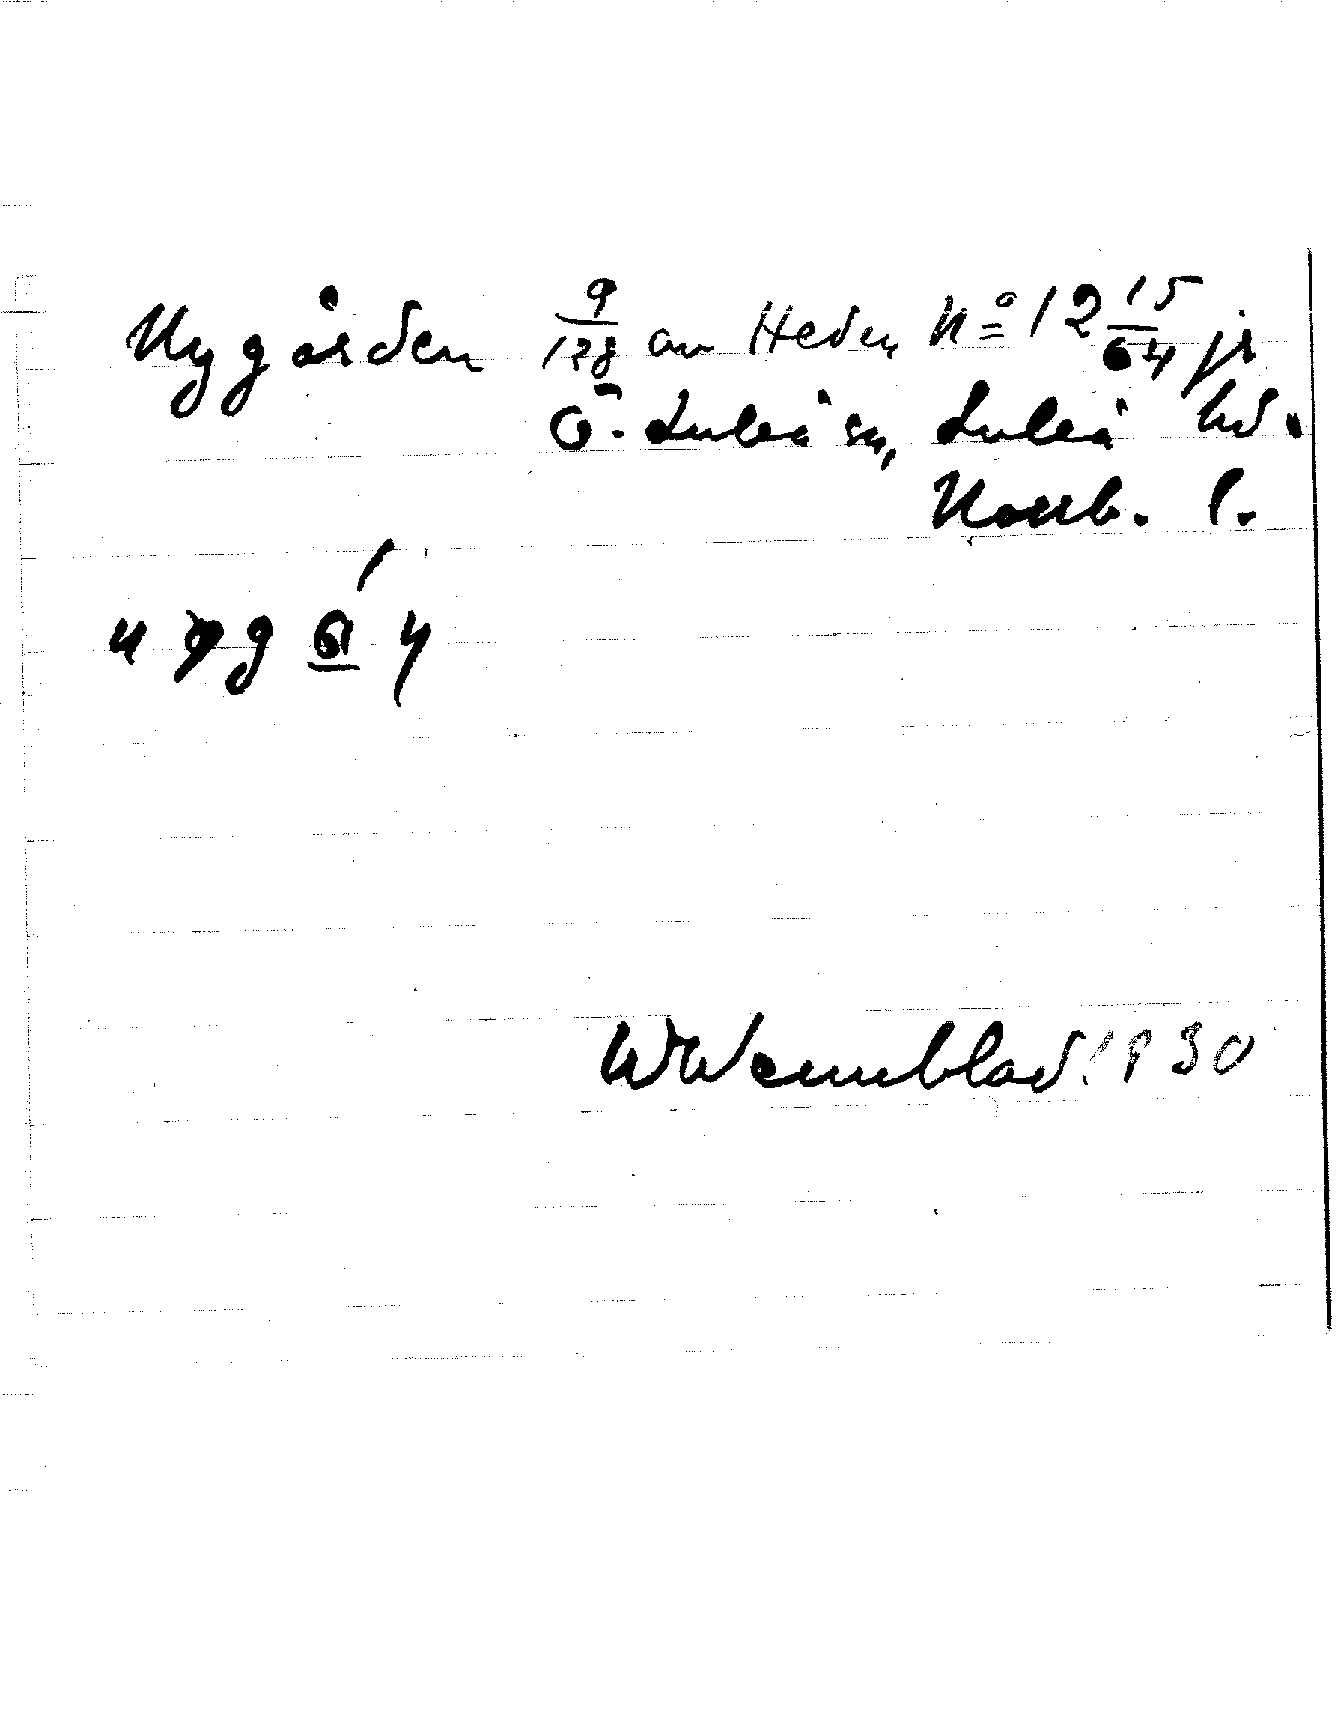 Nygården 9/128 av Heden No 12 15/64 jr
Ö. Luleå sn, Luleå hd.
Norrb. l.
W Wennblad. 1930